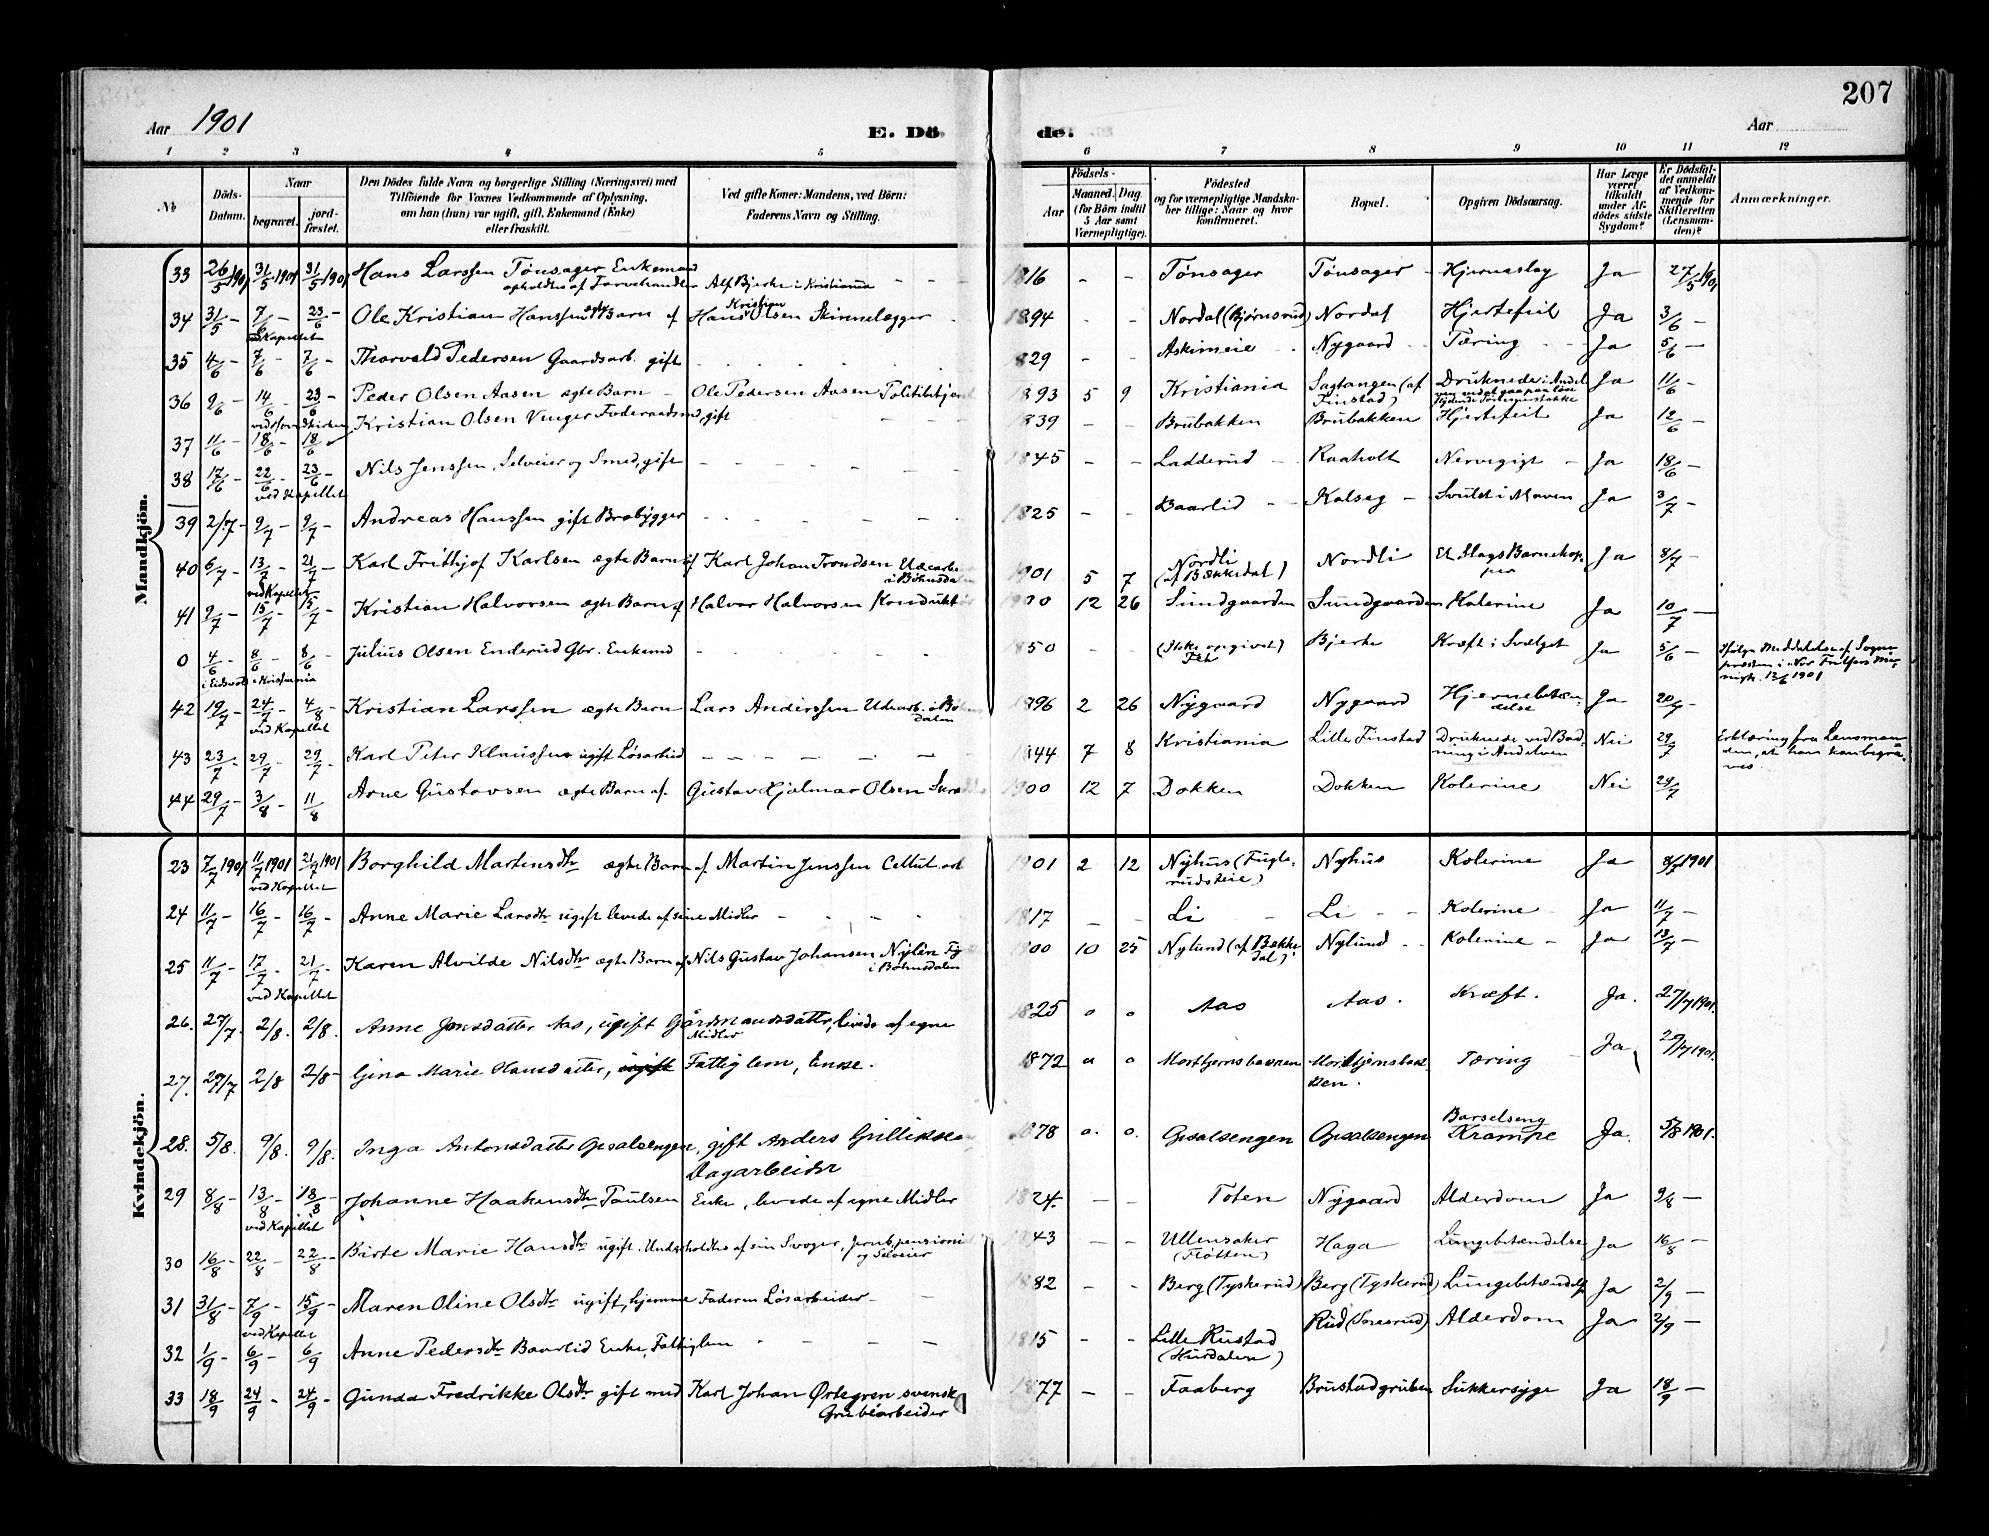 207
Aar 1901
E. Dö de.
Aar
1 2 3 4 5 6 7 8 9 10 11 12
No
Döds-Datum.
Naar
begravet.
jord-fæstet.
Den Dödes fulde Navn og borgerlige Stilling (Næringsvei) med
Tilföiende for Voxnes Vedkommende af Oplysning,
om han (hun) var ugift, gift, Enkemand (Enke)
eller fraskilt.
Ved gifte Koner: Mandens, ved Börn:
Faderens Navn og Stilling.
Födsels-
Aar
Maaned. Dag.
(for Börn indtil
5 Aar samt
Værnepligtige).
Födested
og for værnepligtige Mandskaber tillige: Naar og hvor
konfirmeret.
Bopæl.
Opgiven Dödsaarsag.
Har Læge
været
tilkaldt
under Afdödes sidste
Sygdom?
Er Dödsfaldet anmeldt
af Vedkommende for
Skifteretten
(Lensmanden)?
Anmærkninger.
Mandkjön.
33 26/5 1901 31/5 1901 31/5 1901 Hans Larssen Tønsager Enkemand opholdtes af Farvehandler Alf Bjerke i Kristiania 1816 - - Tønsager Tønsager Hjerneslag Ja 27/5 1901
34 31/5 - 7/6 - 23/6 - Ole Kristian Hanssen ægte Barn af Hans Kristian Olsen Skinnelægger 1894 - - Nordal (Bjørnsrud) Nordal Hjertefeil Ja 3/6 -
Kapellet
35 4/6 - 7/6 - 7/6 - Thorvald Pedersen Gaardsarb. gift 1829 - - Askimeie Nygaard Tæring Ja 5/6 -
36 9/6 14/6 - 23/6 - Peder Olsen Aasen ægte Barn Ole Pedersen Aasen 1893 5 9 Kristiania Sagtangen (af Finstad) Druknede i Andel Ja 11/6 -
37 11/6 - 18/6 - 18/6 Kristian Olsen Vinger Føderaadsmd, gift 1839 - - Brubakken Brubakken Hjertefeil Ja 12/6 -
38 17/6 - 22/6 - 23/6 - Nils Jenssen, Selveier og Smed, gift 1845 - - Ladderud Raaholt Nervegigt Ja 18/6 -
ved Kapellet
39 2/7 - 9/7 - 9/7 Andreas Hanssen gift Brobygger 1825 - - Baarlid Kalseg Svulst i Maven Ja 3/7 -
40 6/7 - 13/7 - 21/7 - Karl Frithjof Karlsen ægte Barn af Karl Johan Trondsen i Bøhnsdalen 1901 5 7 Nordli (af Bækkedal) Nordli Et Slags Barnekopper Ja 8/7 -
ved Kapellet
41 9/7 - 15/7 - 15/7 - Kristian Halvorsen ægte Barn af Halvor Halvorsen Konduktør 1900 12 26 Sundgaarden Sundgaarden Kolerine Ja 10/7 -
0 4/6 - 8/6 - 8/6 - Julius Olsen Enderud Gbr. Enkemd 1850 - - (Ikke opgivet) Bjerke Kræft i Svælget Ja 5/6 - Ifølge Meddelelse af Sognepræsten i 13/6 1901
i Eidsvold i Kristiania
42 19/7 - 24/7 - 4/8 Kristian Larssen ægte Barn Lars Anderssen 1896 2 26 Nygaard Nygaard Hjernebetændelse Ja 20/7 -
ved Kapellet
43 23/7 - 29/7 - 29/7 - Karl Peter Klaussen ugift Løsarbeid 1844 7 8 Kristiania Lille Finstad Druknede ved Badning i Andelven Nei 29/7 Erklæring fra Lensmanden, at han kan begraves.
44 29/7 - 3/8 - 11/8 Arne Gustavsen ægte Barn af Gustav Hjalmar Olsen 1900 12 7 Dokken Dokken Kolerine Nei 29/7
Kvindekjön.
23 7/7 1901 11/7 1901 21/7 1901 Borghild Martensdtr ægte Barn af Martin Jenssen Cellul.arb 1901 2 12 Nyhus (Fuglerudseie) Nyhus Kolerine Ja 8/7 1901
ved Kapellet
24 11/7 - 16/7 - 16/7 - Anne Marie Larsdtr ugift levede af sine Midler 1817 - - Li Li Kolerine Ja 11/7 -
25 11/7 - 17/7 - 21/7 - Karen Alvilde Nilsdtr ægte Barn af Nils Gustav Johansen Nylén i Bøhnsdalen 1900 10 25 Nylund (af Bækkedal) Nylund Kolerine Ja 13/7 -
ved Kapellet
26. 27/7. 2/8. 2/8. Anne Jonsdatter Aas, ugift Gårdmandsdatter, levede af egne Midler 1825 o o Aas Aas. Kræft. Ja. 27/7 1901.
27. 29/7 2/8 2/8 - Gina Marie Hansdatter, ugift Fattiglem, Enke. 1872 o o Morttjernsbakken Morttjernsbakken. Tæring Ja 29/7 1901.
28. 5/8. 9/8. 9/8. Inga Antonsdatter Opsalsengen, gift Anders Gulliksen Dagarbeider 1878 o. o. Opsalsengen Opsalsengen Barselseng Krampe Ja. 5/8 1901.
29 8/8 - 13/8 - 18/8 - Johanne Haakensdtr Paulsen Enke, levede af egne Midler 1824. - - Toten Nygaard Alderdom Ja 9/8 -
ved Kapellet
30 16/8 - 22/8 - 22/8 Birte Marie Hansdtr ugift. Underholdtes af sin Svoger, Jernb.pensionist og Selveier 1843 - - Ullensaker (Fløtten) Haga Lungebetændelse Ja 16/8 -
31 31/8 - 7/9 - 15/9 - Maren Oline Olsdtr ugift, hjemme Faderen Løsarbeider 1882 - - Berg (Tyskerud) Berg (Tyskerud) Lungebetændelse Ja 2/9 -
ved Kapellet
32 1/9 - 6/9 - 6/9 Anne Pedersdtr Baarlid Enke, Fattiglem 1815 - - Lille Rustad (Hurdalen) Rud Alderdom Ja 2/9 -
33 18/9 24/9 - 24/9 - Gunda Fredrikke Olsdtr gift med Karl Johan Ørtegren svensk Grubearbeider 1877 - - Faaberg Brustadgruben Sukkersyge Ja 18/9 -